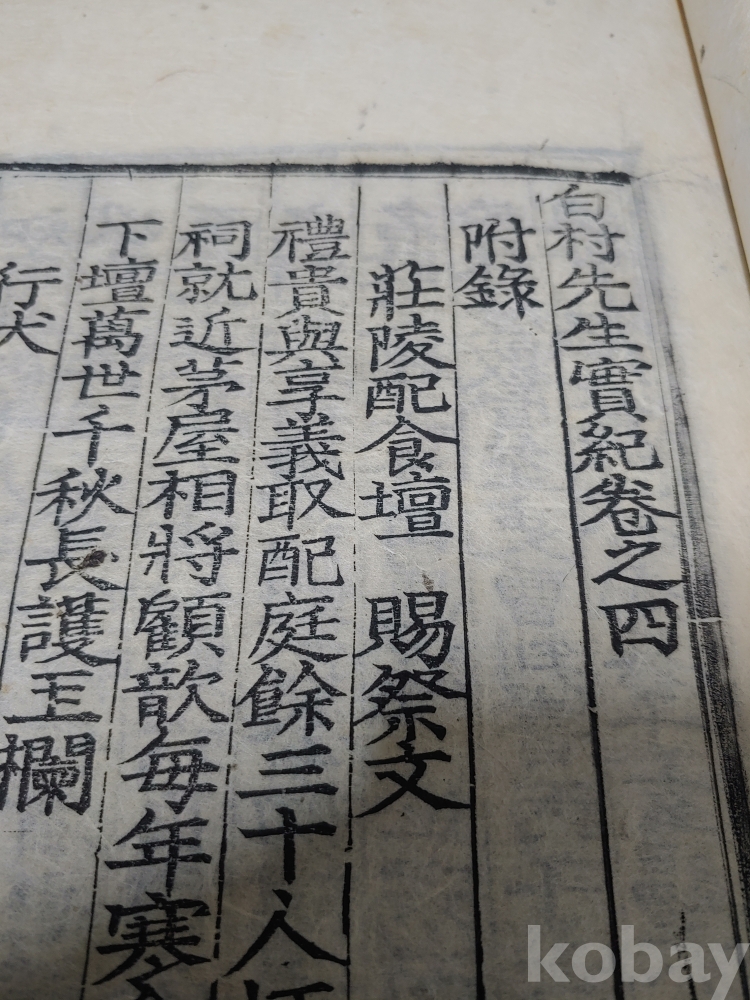 白村先生實紀卷之四
附錄
莊陵配食壇 賜祭文
禮貴與享義取配庭餘三十人
祠就近茅屋相將顧歆每年寒
下壇萬世千秋長護玉欄
行犬
kobay